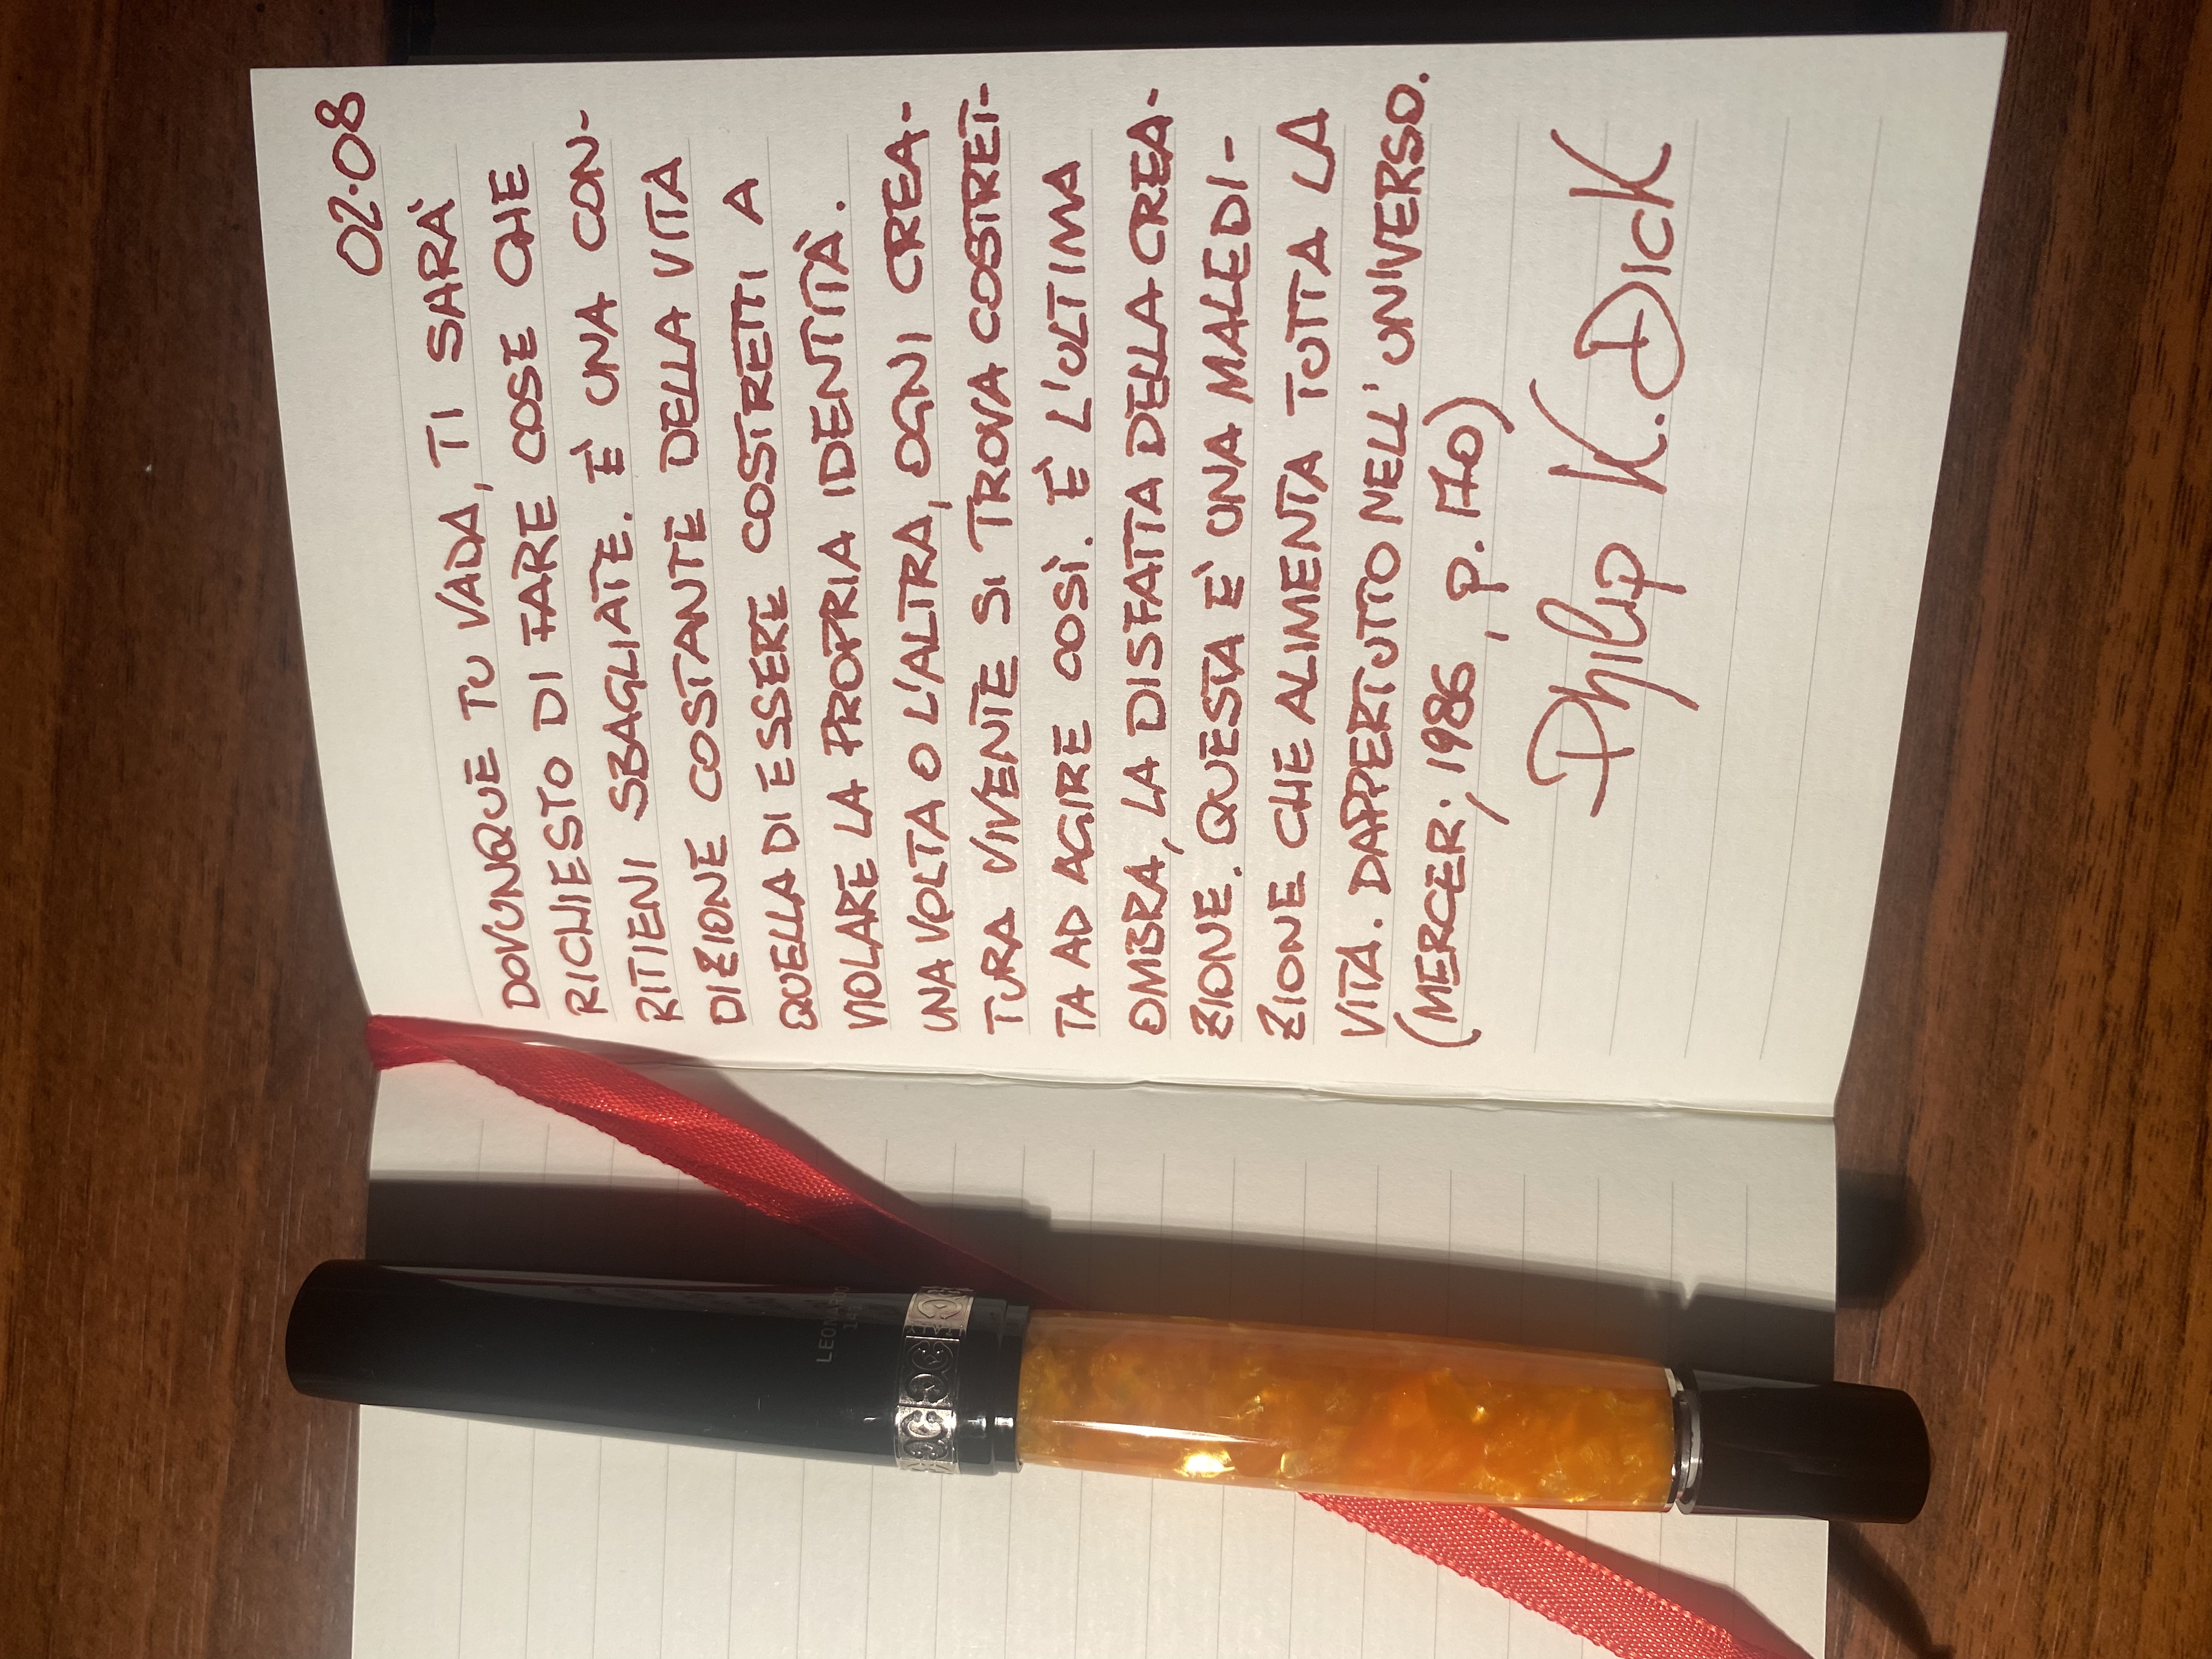 02.08
DOVUNQUE TU VADA, TI SARÀ
RICHIESTO DI FARE COSE CHE
RITIENI SBAGLIATE. È UNA CON-
DIZIONE COSTANTE DELLA VITA
QUELLA DI ESSERE COSTRETTI A
VIOLARE LA PROPRIA IDENTITÀ.
UNA VOLTA O L'ALTRA, OGNI CREA-
TURA VIVENTE SI TROVA COSTRET-
TA AD AGIRE COSÌ. È L'ULTIMA
OMBRA, LA DISFATTA DELLA CREA-
ZIONE. QUESTA È UNA MALEDI-
ZIONE CHE ALIMENTA TUTTA LA
VITA. DAPPERTUTTO NELL'UNIVERSO.
(MERCER; 1986, p. 170)
Philip K. Dick
LEONARDO